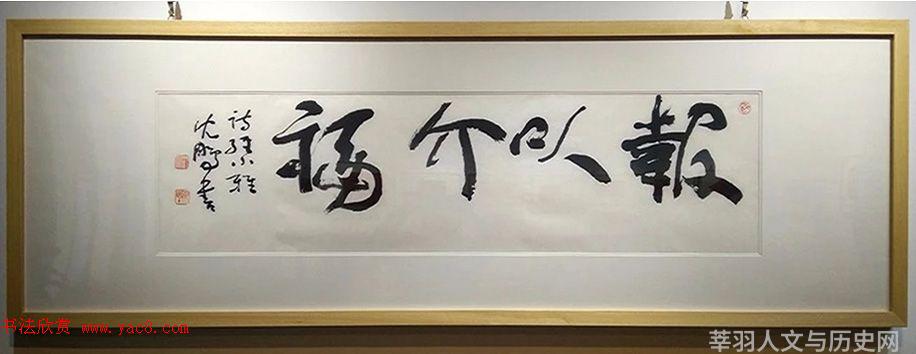 報以介福
诗经小雅
沈鹏书
书法欣赏 www.yac8.com
莘羽人文与历史网